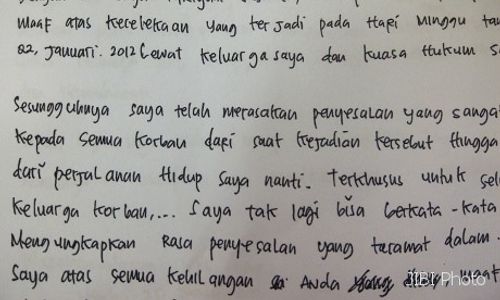 maaf atas kecelekaan yang terjadi pada Hari Minggu
22, Januari. 2012 Lewat keluarga saya dan kuasa Hukum
Sesungguhnya saya telah merasakan penyesalan yang
kepada semua korban dari saat kejadian tersebut hingga
dari perjalanan Hidup saya nanti. Terkhusus untuk
keluarga korban,... Saya tak lagi bisa berkata-kata
Mengungkapkan Rasa penyesalan yang teramat dalam.
Saya atas semua kehilangan Anda
JIBI Photo